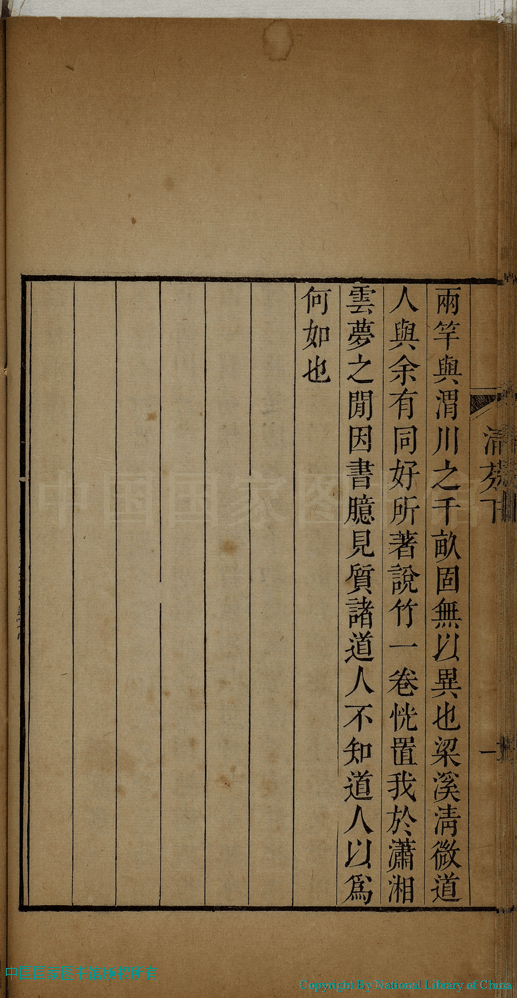 兩竿與渭川之千畝固無以異也梁溪清微道
人與余有同好所著說竹一卷恍置我於瀟湘
雲夢之閒因書臆見質諸道人不知道人以爲
何如也
一
Copyright By National Library of China